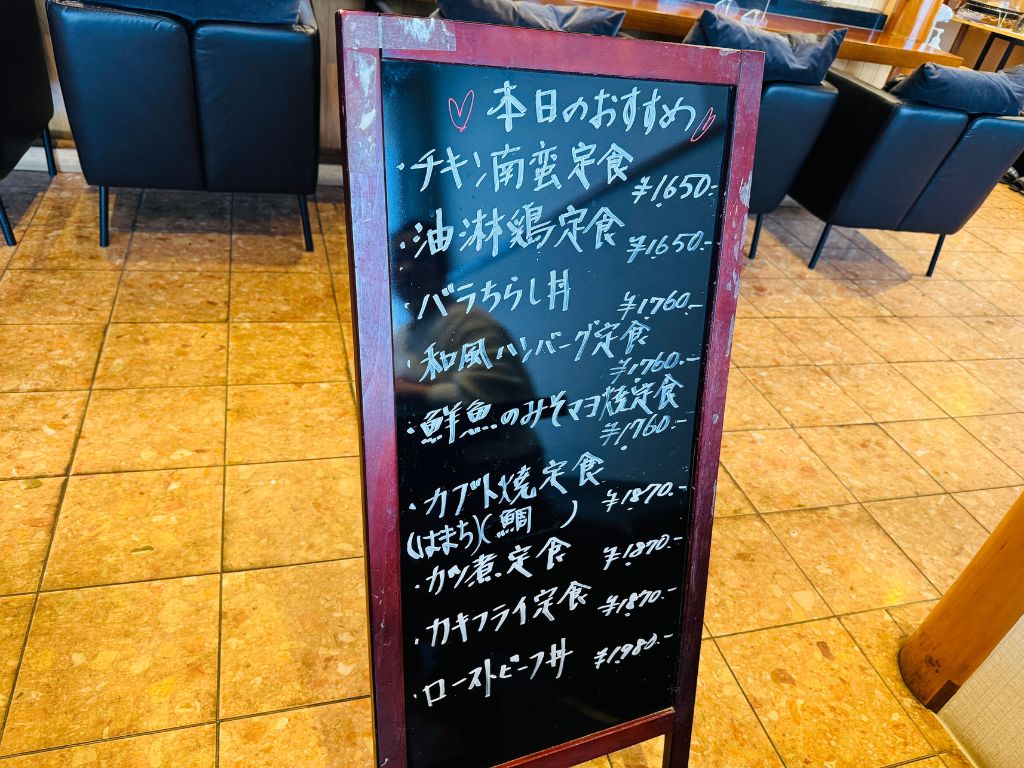 本日のおすすめ
・チキン南蛮定食
¥1,650.-
・油淋鶏定食
¥1,650.-
・バラちらし丼
¥1,760.-
・和風ハンバーグ定食
¥1,760.-
・鮮魚のみそマヨ焼定食
¥1,760.-
・カブト焼定食
¥1,870.-
(はまち)(鯛　)
・カツ煮定食
¥1,870.-
・カキフライ定食
¥1,870.-
・ローストビーフ丼
¥1,980.-